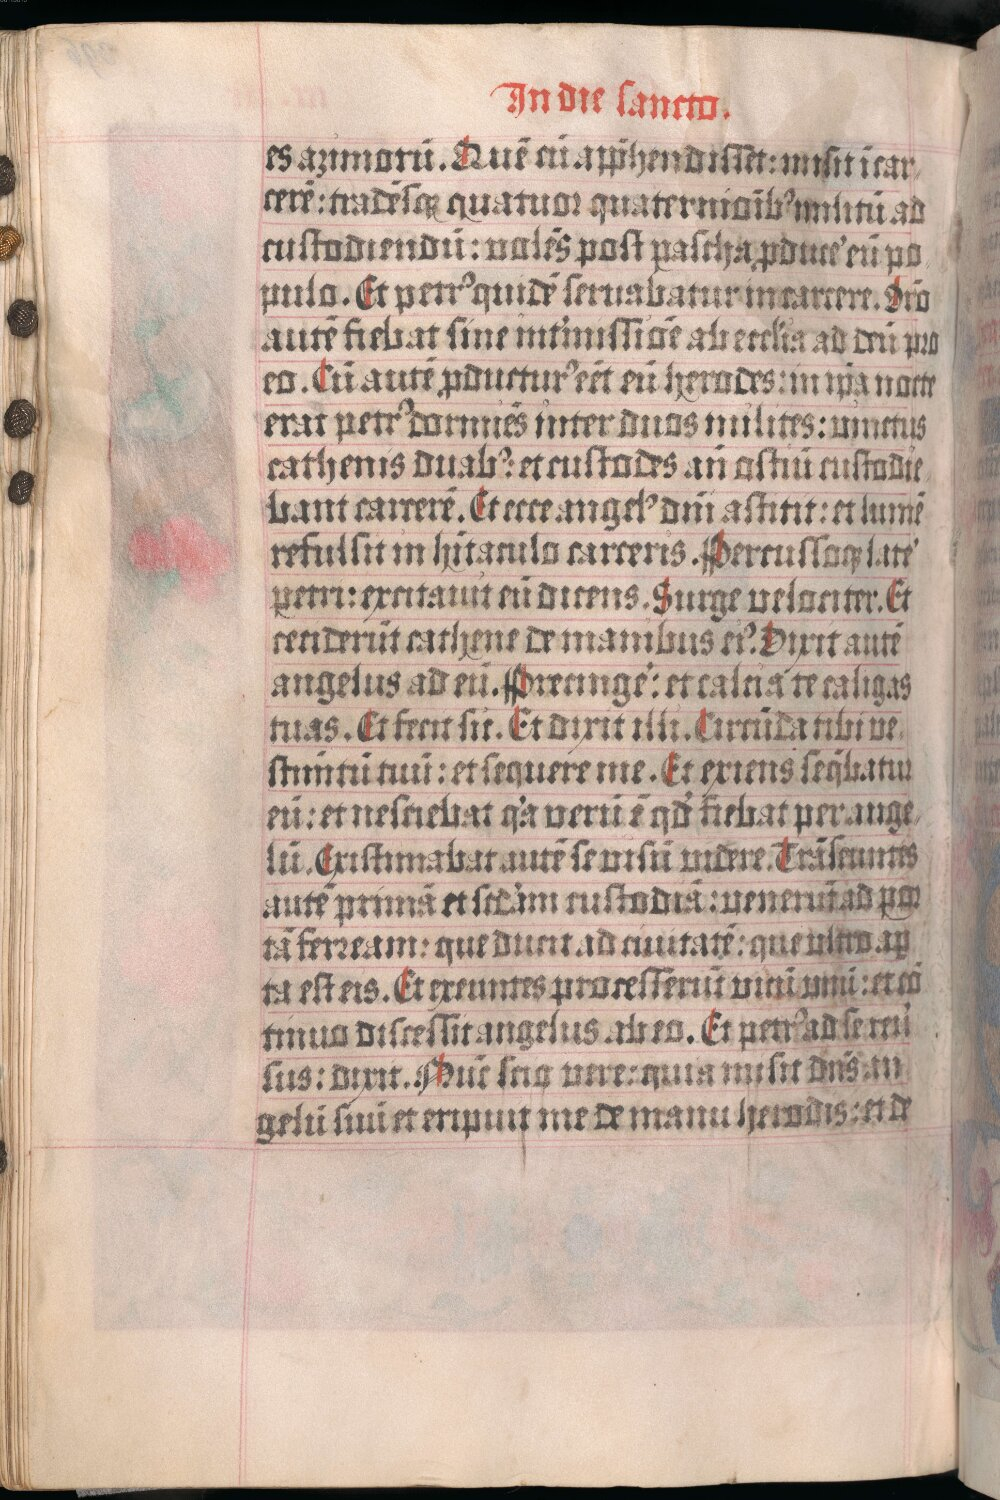 In die sancto.
es azimorū. Quē cū app̄hendisset: misit ī car¬
cerē: tradēsq̨ quatuor quaternioīb⁹ militū ad
custodiendū: volēs post pascha ꝓduce᷑ eū po¬
pulo. Et petr⁹ quidē seruabatur in carcere. Oro
autē fiebat sine int᷑missiōe ab ecclīa ad deū pro
eo. Cū autē ꝓductur⁹ eēt eū herodes: in ip̄a nocte
erat petr⁹ dormiēs inter duos milites: vinctus
cathenis duab⁹: et custodes añ ostiū custodie¬
bant carcerē. Et ecce angel⁹ dn̄i astitit: et lumē
refulsit in hītaculo carceris. Percussoq̨ late᷑
petri: excitauit eū dicens. Surge velociter. Et
ceciderūt cathene de manibus ei⁹. Dixit autē
angelus ad eū. Precinge᷑: et calcia te caligas
tuas. Et fecit sic. Et dixit illi. Circūda tibi ve¬
stimntū tuū: et sequere me. Et exiens seq̄batur
eū: et nesciebat q᷑a verū ē qd̄ fiebat per ange¬
lū. Existimabat autē se visū videre. Trāseuntes
autē primā et secd̄am custodiā: venerūt ad por
tā ferream: que ducit ad ciuitatē: que vltro ap
ta est eis. Et exeuntes processerūt vicū vnū: et cō
tinuo discessit angelus ab eo. Et petr⁹ ad se reū
sus: dixit. Nūc scio vere: quia misit dn̄s an
gelū suū et eripuit me de manu herodis: et de